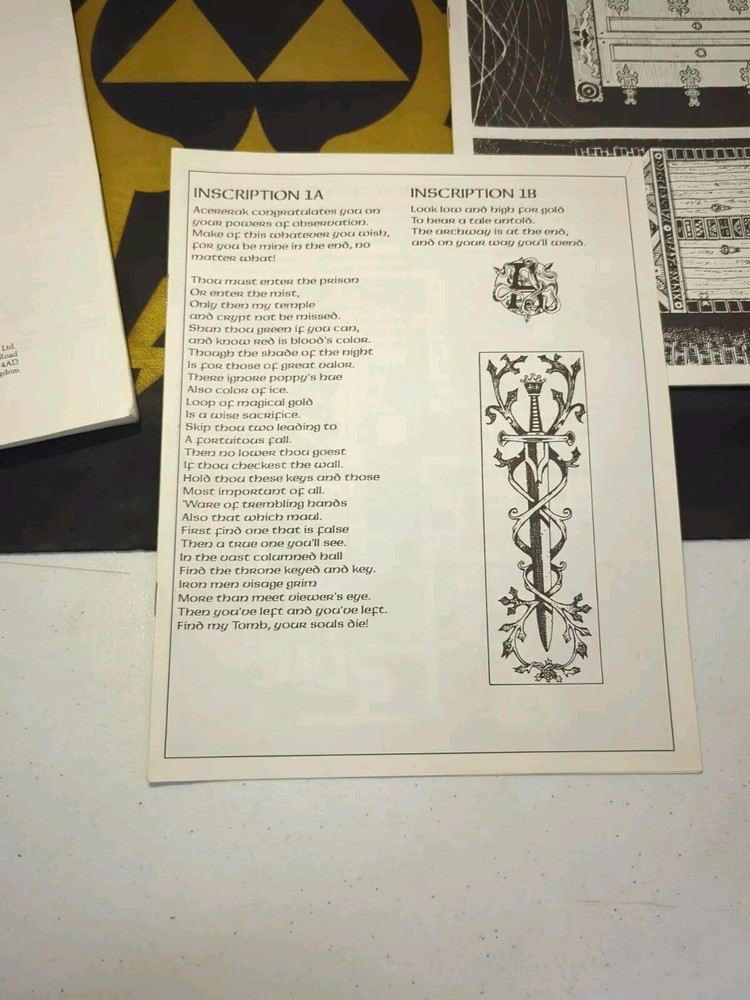 INSCRIPTION 1A
Acererak congratulates you on
your powers of observation.
Make of this whatever you wish,
for you be mine in the end, no
matter what!
Thou must enter the prison
Or enter the mist,
Only then my temple
and crypt not be missed.
Shun thou green if you can,
and know red is blood's color.
Though the shade of the night
Is for those of great valor.
There ignore poppy's hue
Also color of ice.
Loop of magical gold
Is a wise sacrifice.
Skip thou two leading to
A fortuitous fall.
Then no lower thou goest
If thou checkest the wall.
Hold thou these keys and those
Most important of all.
'Ware of trembling hands
Also that which maul.
First find one that is false
Then a true one you'll see.
In the vast columned hall
Find the throne keyed and key.
Iron men visage grim
More than meet viewer's eye.
Then you've left and you've left.
Find my Tomb, your souls die!
INSCRIPTION 1B
Look low and high for gold
To hear a tale untold.
The archway is at the end,
and on your way you'll wend.
Ltd.
Road
4AD
gdom